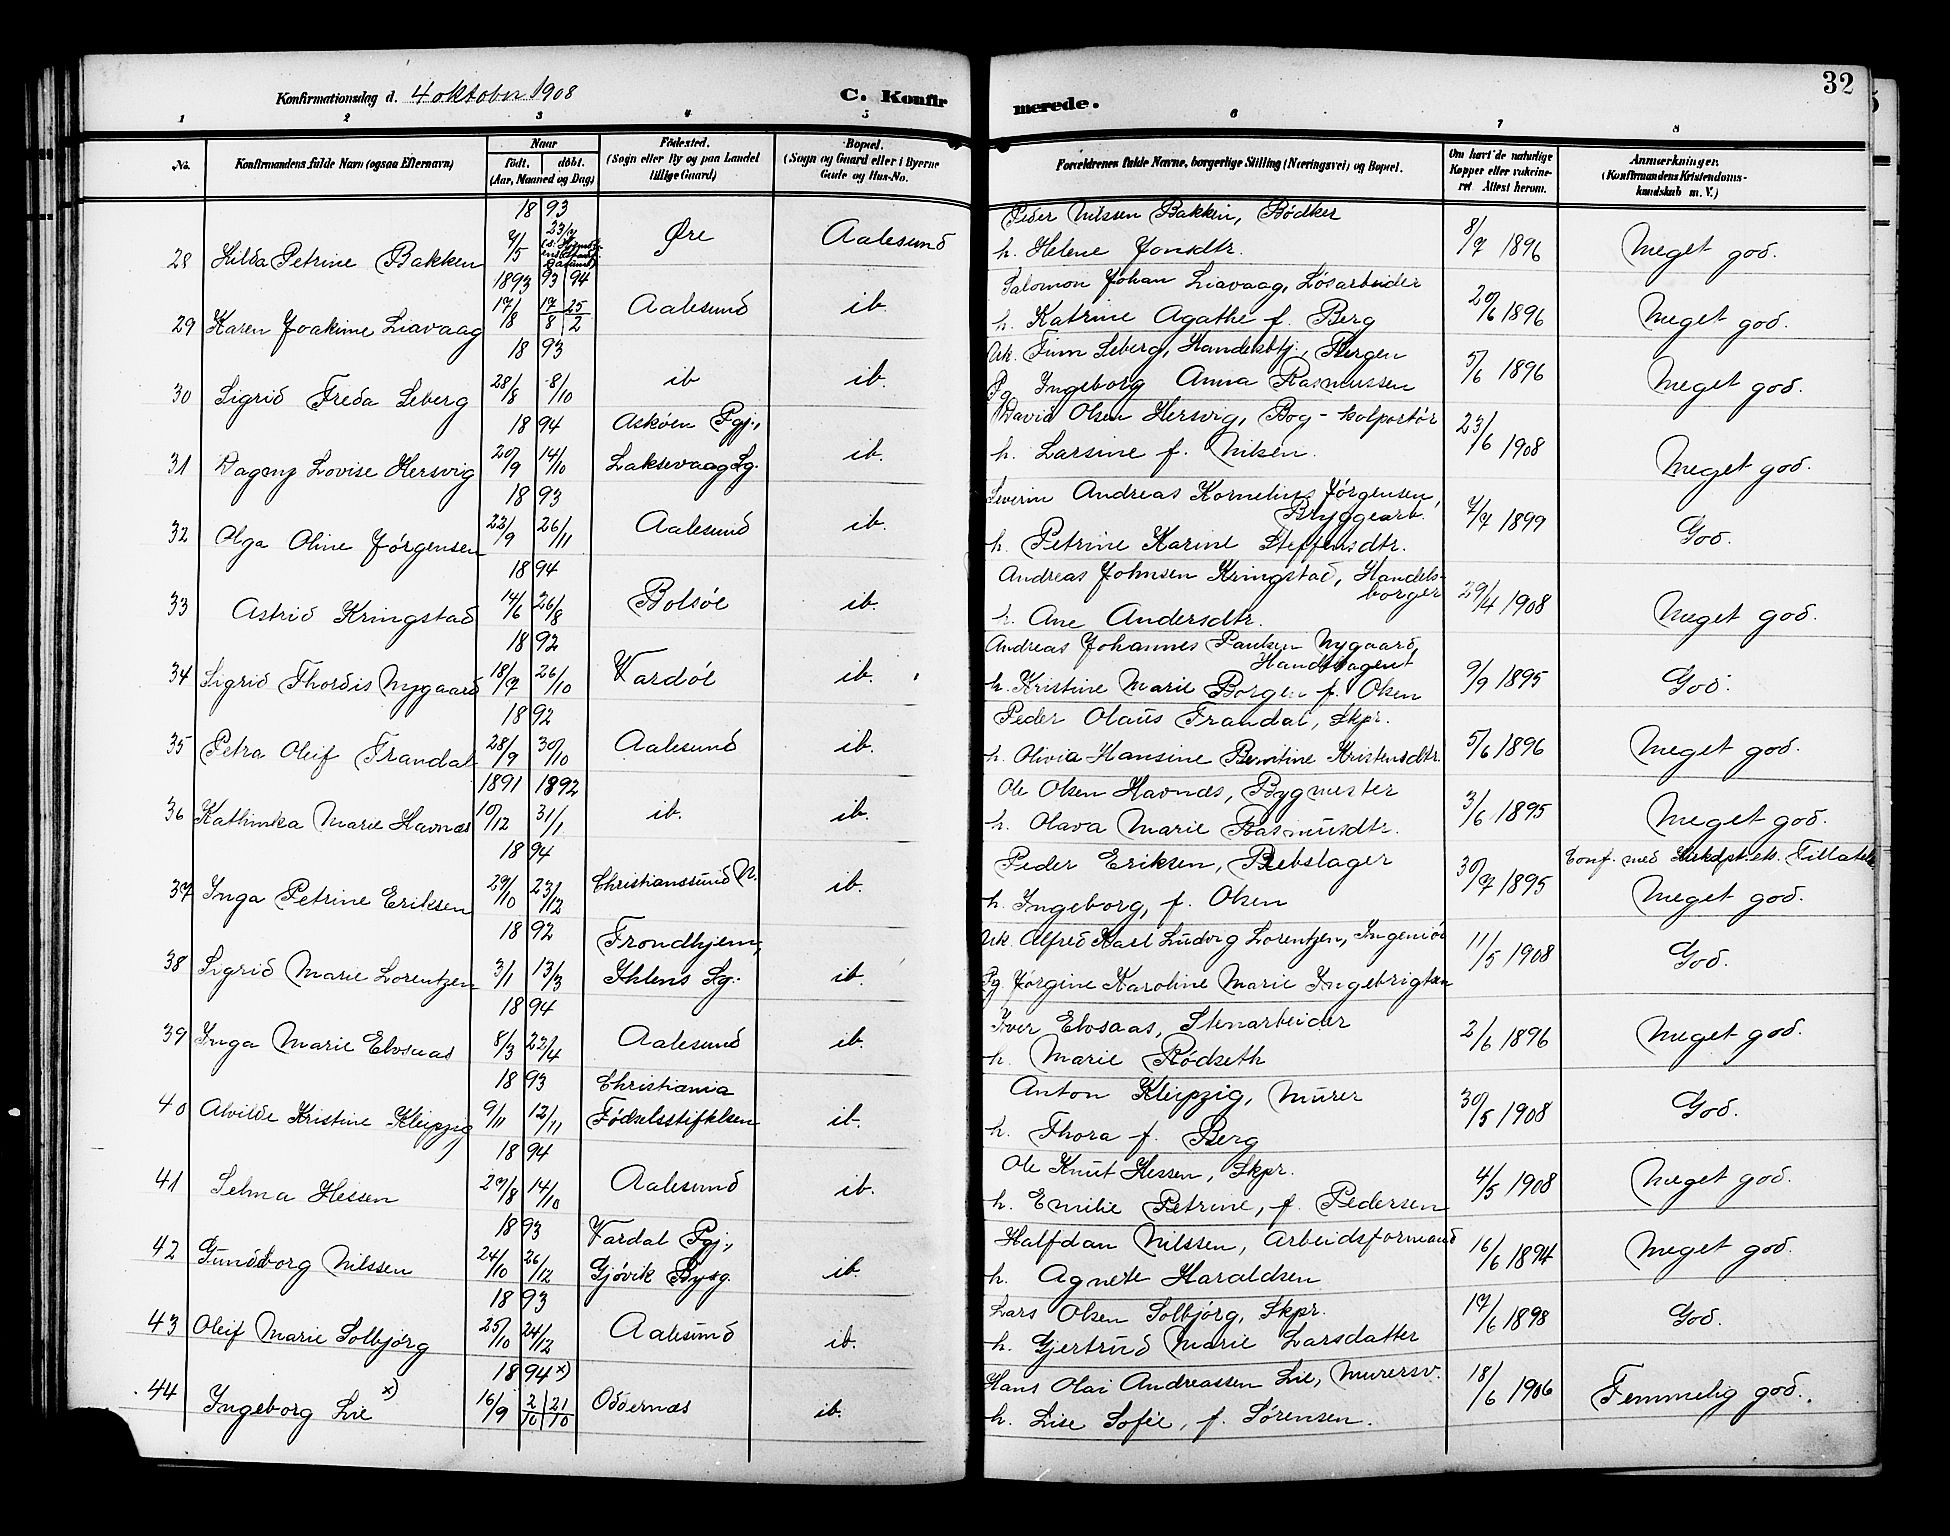 32
Konfirmationsdag d. 4 oktober 1908
C. Konfirmerede.
1 2 3 4 5 6 7 8
No.
Konfirmandens fulde Navn (ogsaa Efternavn)
Naar
født. døbt.
(Aar, Maaned og Dag)
Fødested.
(Sogn eller By og paa Landet
tillige Gaard)
Bopæl.
(Sogn og Gaard eller i Byerne
Gade og Hus-No.
Forældrenes fulde Navne, borgerlige Stilling (Næringsvei) og Bopæl.
Om havt de naturlige
Kopper eller vakcine-
ret Attest herom.
Anmærkninger.
(Konfirmandens Kristendoms-
kundskab m. V.)
18 93
Peder Nilssen Bakken, Bødker
28 Hilda Petrine Bakken 4/5 23/7 Øre Aalesund h. Helene Jonsdtr. 8/7 1896 Meget god.
1893 93 94
Salomon Johan Liavaag, Løsarbeider
29 Karen Joakime Liavaag 17/8 17/8 25/2 Aalesund ib. h. Katrine Agathe f. Berg 20/6 1896 Meget god.
18 93
Uk. Finn Seberg, Handelsbtj., Bergen
30 Sigrid Freda Seberg 28/8 8/10 ib ib. Pg Ingeborg Anna Rasmussen 5/6 1896 Meget god.
18 94 Askøen Pgj.,
David Olsen Hersvig, Bog-kolportør
31 Dagny Lovise Hersvig 20/9 14/10 Laksevaag Sg. ib. h. Larsine f. Nilsen. 23/6 1908 Meget god.
18 93
Severin Andreas Kornelius Jørgensen,
Bryggearb.
32 Olga Oline Jørgensen 22/9 26/11 Aalesund ib. h. Petrine Karine Steffensdtr. 7/7 1899 God.
18 94
Andreas Johnsen Kringstad, Handels-
borger
33 Astrid Kringstad 14/6 26/8 Bolsöe ib. h. Ane Andersdtr. 29/4 1908 Meget god.
18 92
Andreas Johannes Paulsen Nygaard,
Handelsagent
34 Sigrid Thordis Nygaard 18/7 26/10 Vardöe ib. h. Kristine Marie Borgen f. Olsen 9/9 1895 God.
18 92
Peder Olaus Frandal, Skpr.
35 Petra Oleif Frandal 28/9 30/10 Aalesund ib. h. Olivia Hansine Berntine Kristensdtr. 5/6 1896 Meget god.
1891 1892
Ole Olsen Havnæs, Bygmester
36 Kathinka Marie Havnæs 10/12 31/1 ib. ib. h. Olava Marie Rasmusdtr. 3/6 1895 Meget god.
18 94
Peder Eriksen, Rebslager
Conf. med Tillatelse
37 Inga Petrine Eriksen 29/10 23/12 Christianssund N. ib. h. Ingeborg, f. Olsen 30/7 1895 Meget god.
18 92 Trondhjem,
Uk. Alfred Karl Ludvig Lorentzen, Ingeniør
38 Sigrid Marie Lorentzen 3/1 13/3 Ihlens Sg. ib. Pg Jørgine Karoline Marie Ingebrigtsen 11/5 1908 God.
18 94
Iver Elvsaas, Stenarbeider
39 Inga Marie Elvsaas 8/3 22/4 Aalesund ib. h. Marie Rødseth 2/6 1896 Meget god.
18 93 Christiania
Anton Kleipzig, Murer
40 Alvilde Kristine Kleipzig 9/11 12/11 Fødselsstiftelsen ib. h. Thora f. Berg 30/5 1908 God.
18 94
Ole Knut Hessen, Skpr.
41 Selma Hessen 29/8 14/10 Aalesund ib. h. Emilie Petrine, f. Pedersen 4/5 1908 Meget god.
18 93 Vardal Pgj.,
Halfdan Nilssen, Arbeidsformand
42 Gundborg Nilssen 24/10 26/12 Gjøvik Bysg. ib. h. Agnete Haraldsen 16/6 1894 Meget god.
18 93
Lars Olsen Solbjörg, Skpr.
43 Oleif Marie Solbjörg 25/10 24/12 Aalesund ib. h. Gjertrud Marie Larsdatter 17/6 1898 God.
18 94 x)
Hans Olai Andreassen Lie, Murersv.
44 Ingeborg Lie x) 16/9 2/10 21/10 Oddernæs ib. h. Lise Sofie, f. Sørensen. 18/6 1906 Temmelig god.